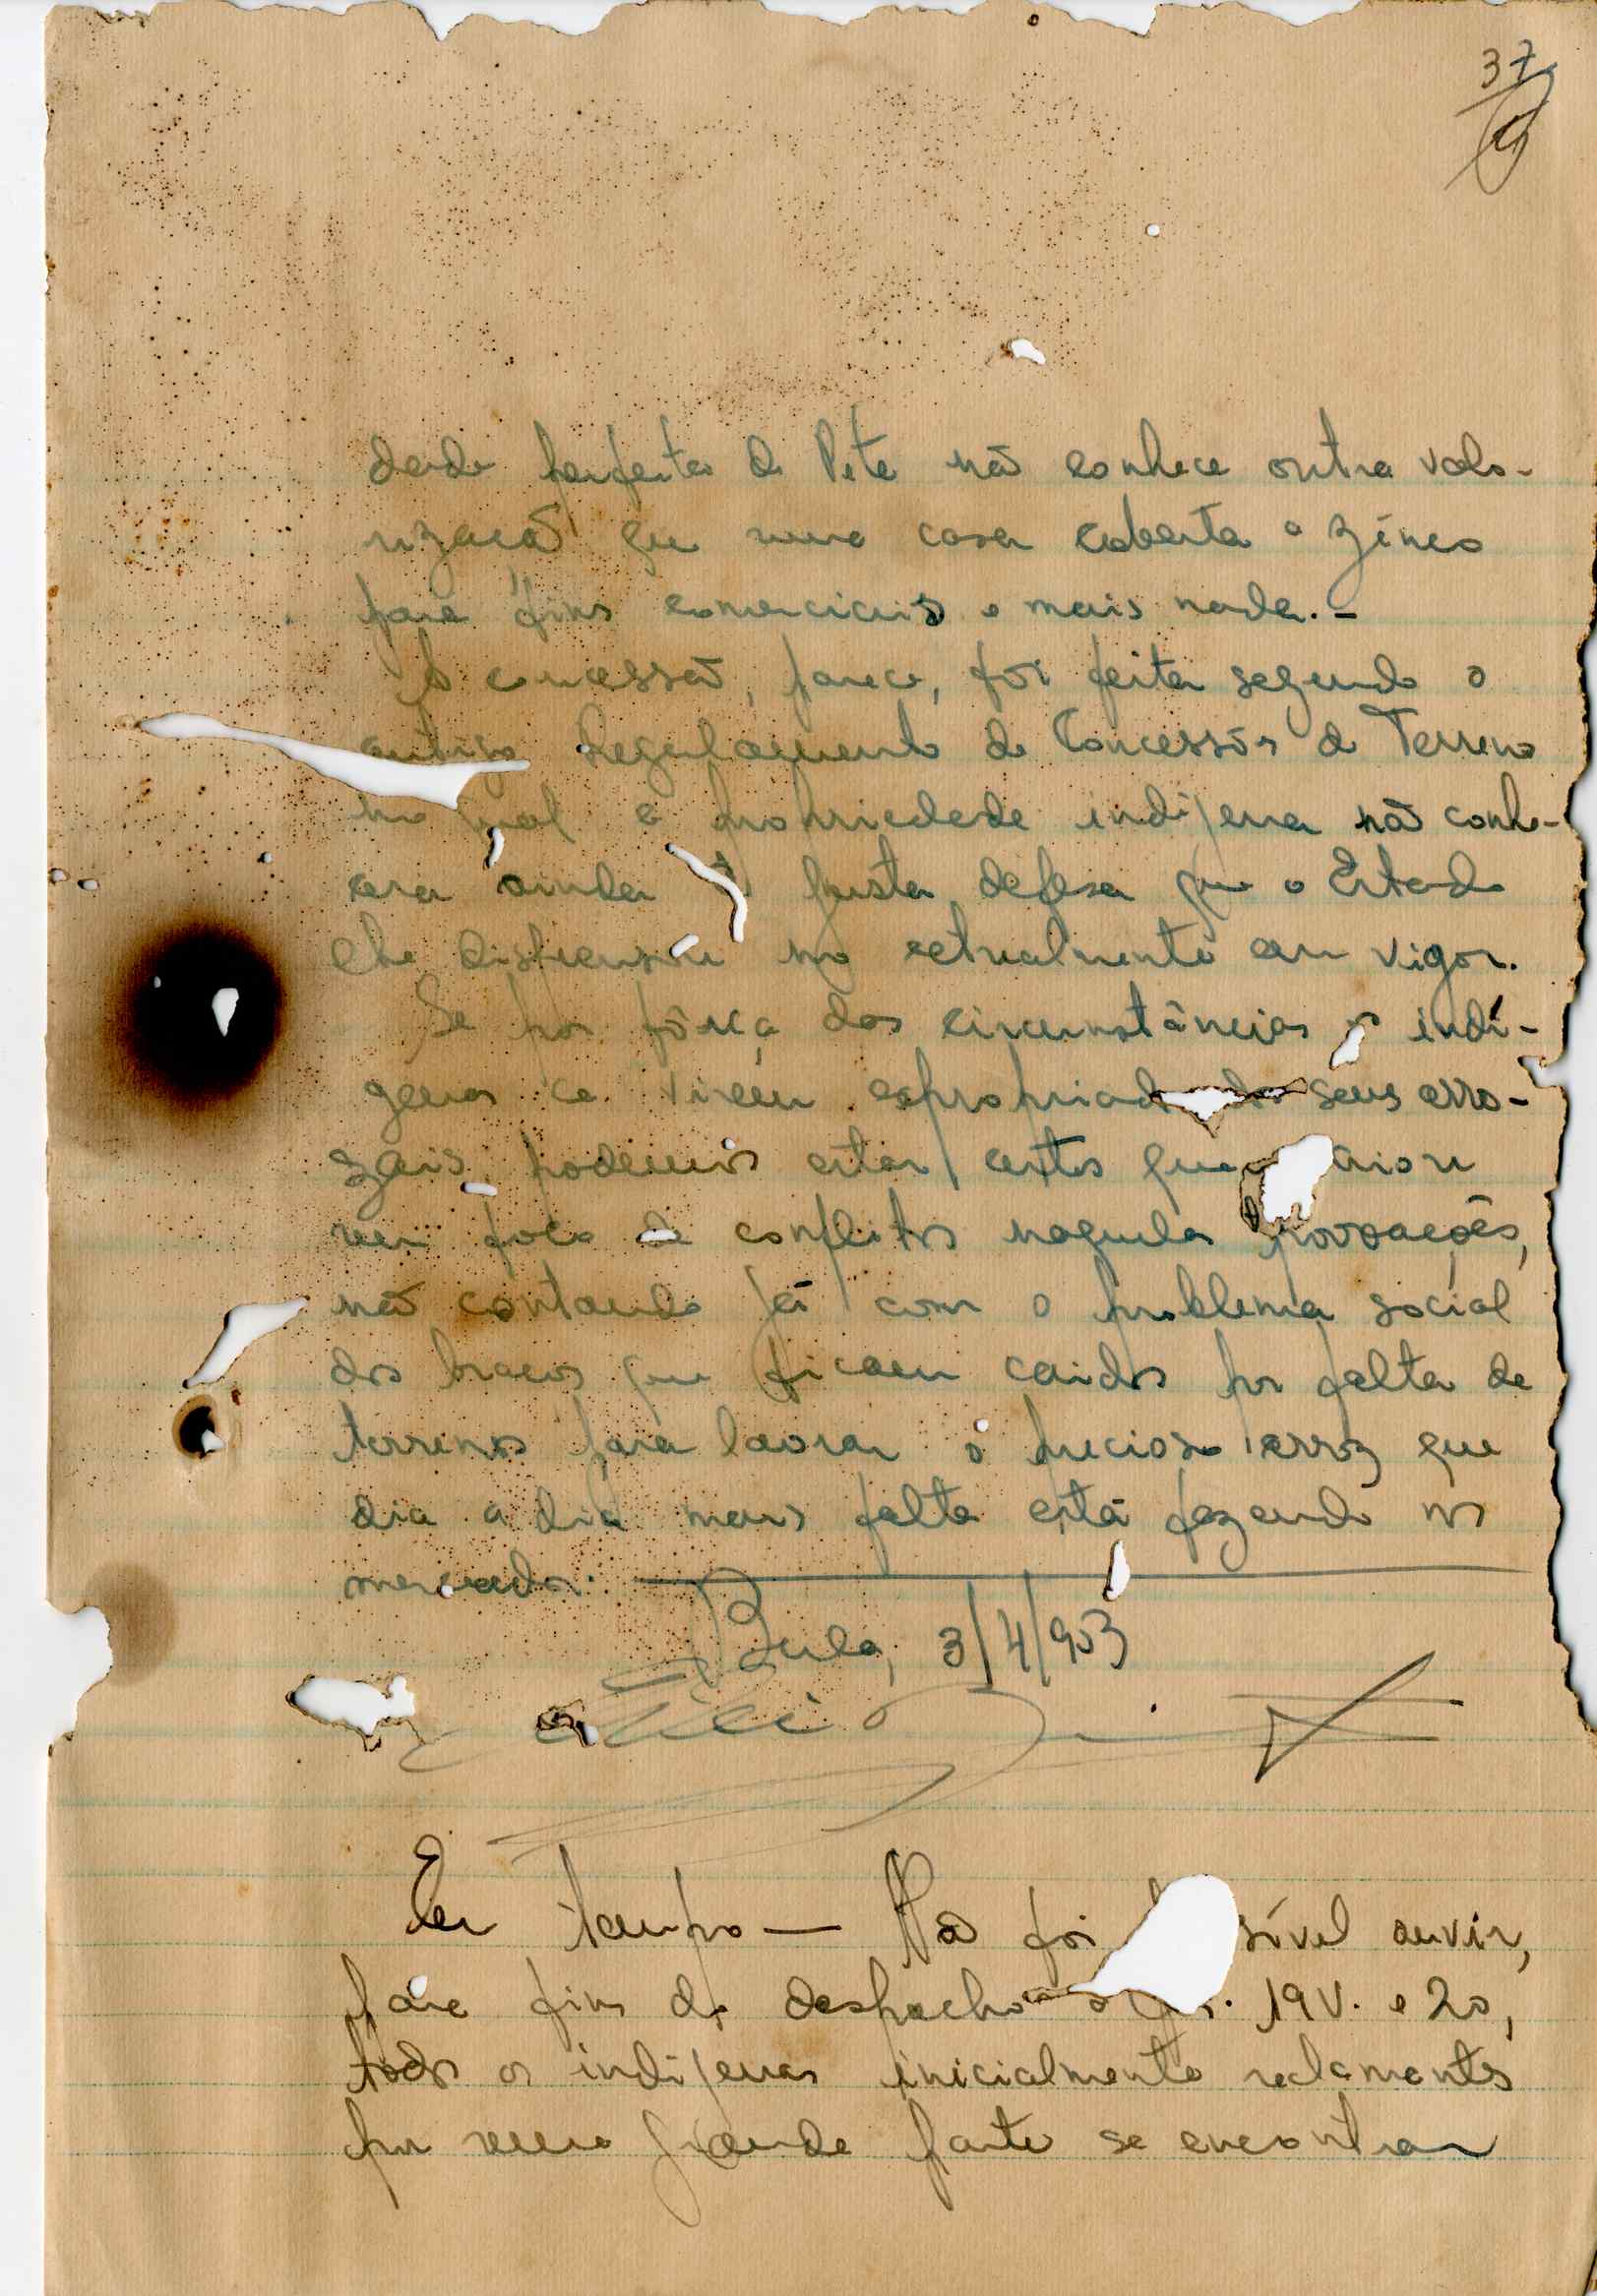 37
dade perfeita de Pete não conhece outra valo-
rização que uma casa coberta a zinco
para fins comerciais e mais nada.-
A concessão, parece, foi feita segundo o
antigo Regulamento de Concessões de Terreno
no qual a propriedade indígena não conhe-
cera ainda a justa defesa que o Estado
lhe dispensou no actualmente em vigor.
Se por fôrça das circunstâncias os indí-
genas se virem expropriados dos seus arro-
zais, podemos estar certos que
um foco de conflitos naquelas povoações,
não contando já com o problema social
dos braços que ficam caidos por falta de
terrenos para lavrar o precioso arroz que
dia a dia mais falta está fazendo nos
mercados.
Bula, 3/4/953
Em tempo — Não foi sível ouvir,
para fins do despacho a fls. 19V. e 20,
todos os indígenas inicialmente reclamantes
por uma grande parte se encontrar